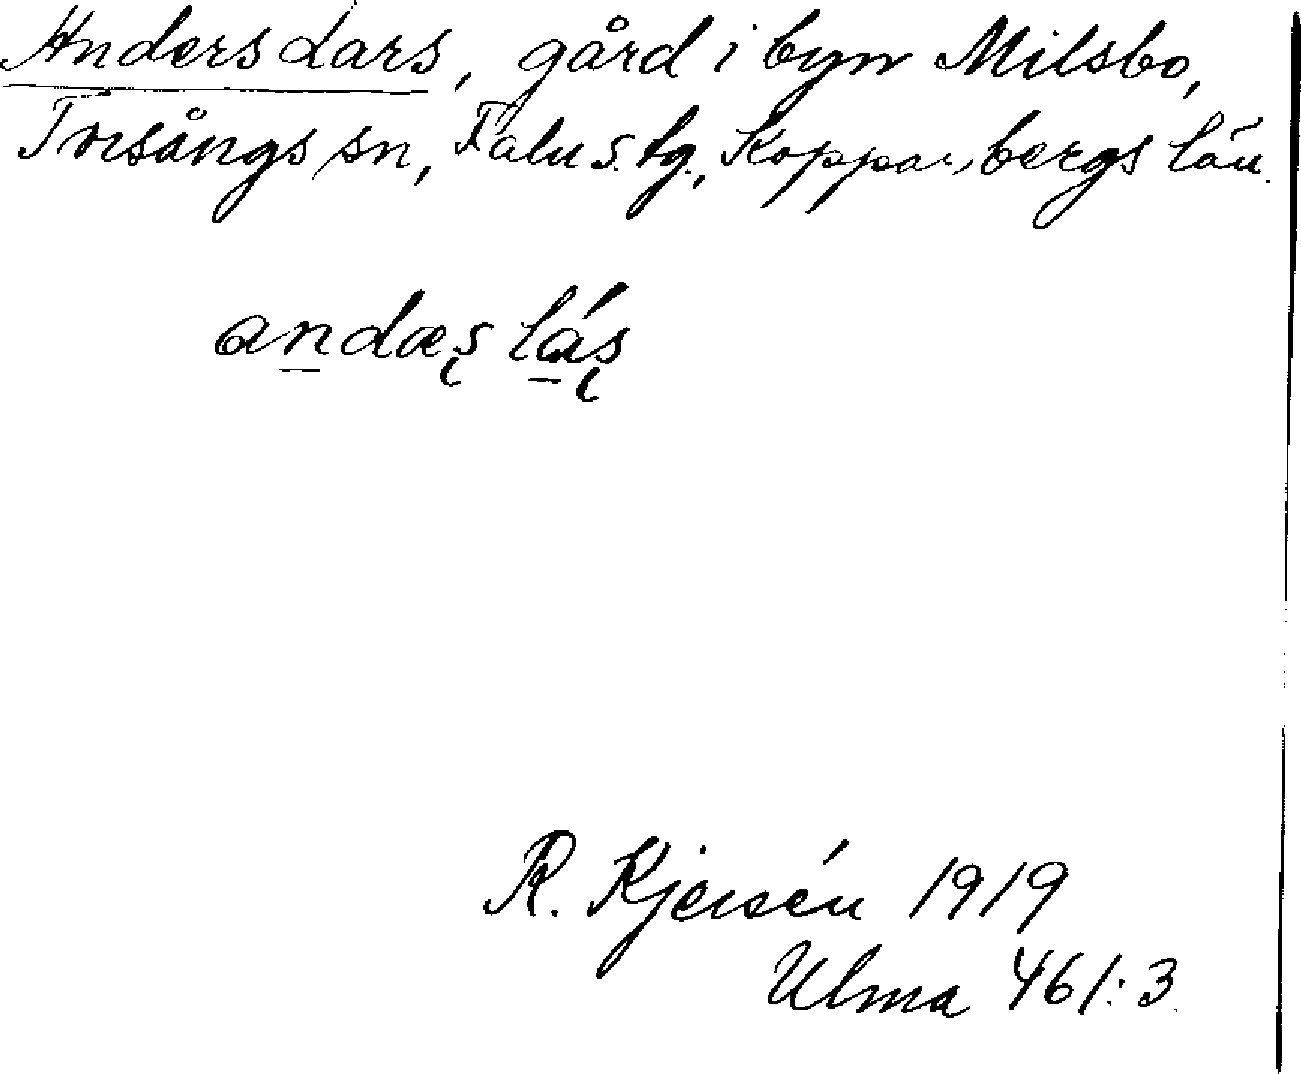 Anders Lars, gård i byn Milsbo,
Torsångs sn, Falu s. tg., Kopparbergs län.
andæs lás
R. Kjersén 1919
Ulma 461:3